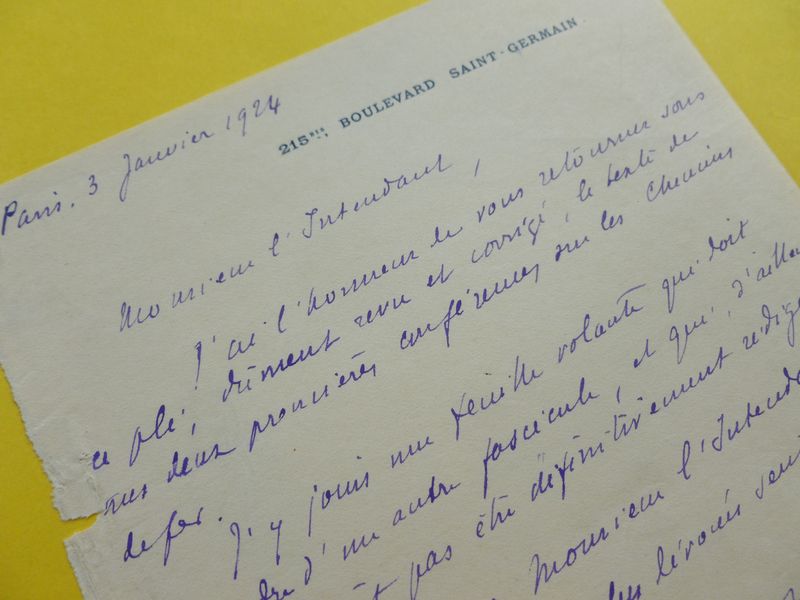 215bis BOULEVARD SAINT-GERMAIN
Paris. 3 Janvier 1924
Monsieur l'Intendant,
J'ai l'honneur de vous retourner sous
ce pli, dûment revu et corrigé, le texte de
mes deux premières conférences sur les Chemins
de fer.
J'y joins une feuille volante qui doit
d'un autre fascicule, et qui, d'ailleu
pas été définitivement rédigé
Monsieur l'Intenda
dévoués sent